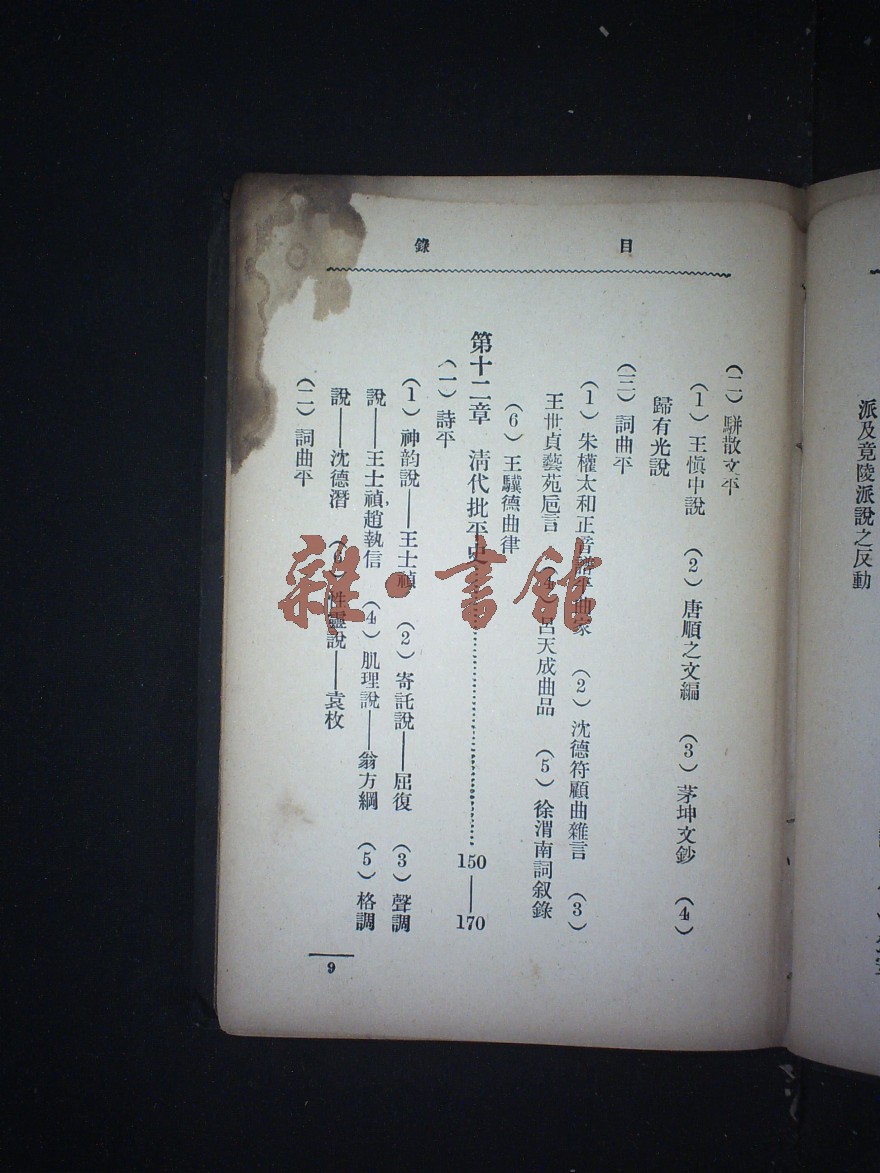 派及竟陵派說之反動
目錄
(二) 駢散文平
(1) 王愼中說 (2) 唐順之文編 (3) 茅坤文鈔 (4)
歸有光說
(三) 詞曲平
(1) 朱權太和正音譜平曲家 (2) 沈德符顧曲雜言 (3)
王世貞藝苑巵言 (4) 呂天成曲品 (5) 徐渭南詞叙錄
(6) 王驥德曲律
第十二章 淸代批平史 150—170
(一) 詩平
(1) 神韵說——王士禎 (2) 寄託說——屈復 (3) 聲調
說——王士禎趙執信 (4) 肌理說——翁方綱 (5) 格調
說——沈德潛 (6) 性靈說——袁枚
(二) 詞曲平
9
雜·書館